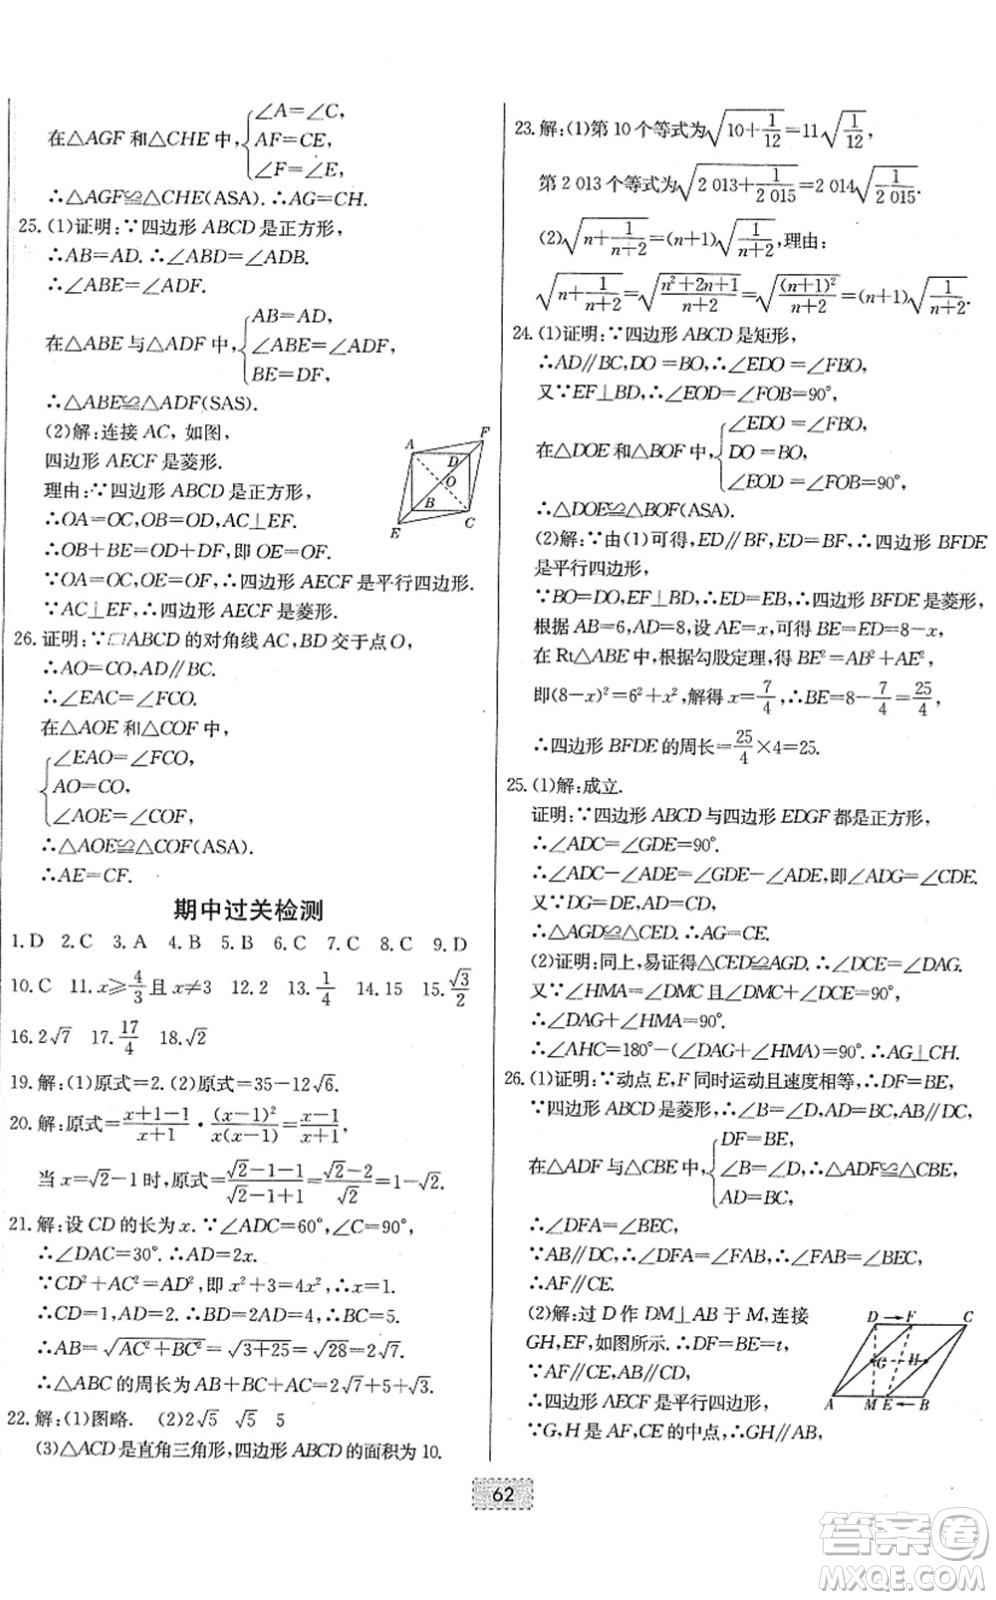 ∠A=∠C,
在△AGF 和△CHE 中, AF=CE,
∠F=∠E,
∴△AGF≌△CHE(ASA). ∴AG=CH.
25. (1)证明:∵四边形 ABCD 是正方形,
∴AB=AD. ∴∠ABD=∠ADB.
∴∠ABE=∠ADF.
AB=AD,
在△ABE 与△ADF 中, ∠ABE=∠ADF,
BE=DF,
∴△ABE≌△ADF(SAS).
(2)解:连接 AC, 如图,
四边形 AECF 是菱形.
理由:∵四边形 ABCD 是正方形,
∴OA=OC,OB=OD,AC⊥EF.
∴OB+BE=OD+DF,即 OE=OF.
∵OA=OC,OE=OF,∴四边形 AECF 是平行四边形.
∵AC⊥EF,∴四边形 AECF 是菱形.
A F D O B E C
26. 证明:∵▱ABCD 的对角线 AC,BD 交于点 O,
∴AO=CO,AD∥BC.
∴∠EAC=∠FCO.
在△AOE 和△COF 中,
∠EAO=∠FCO,
AO=CO,
∠AOE=∠COF,
∴△AOE≌△COF(ASA).
∴AE=CF.
期中过关检测
1. D 2. C 3. A 4. B 5. B 6. C 7. C 8. C 9. D
10. C 11. x≥4/3 且 x≠3 12. 2 13. 1/4 14. 15 15. √3/2
16. 2√7 17. 17/4 18. √2
19. 解:(1)原式=2. (2)原式=35-12√6.
20. 解:原式=(x+1-1)/(x+1)·(x-1)²/(x(x-1))=(x-1)/(x+1),
当 x=√2-1时,原式=(√2-1-1)/(√2-1+1)=(√2-2)/√2=1-√2.
21. 解:设 CD 的长为 x. ∵∠ADC=60°,∠C=90°,
∴∠DAC=30°. ∴AD=2x.
∵CD²+AC²=AD²,即 x²+3=4x²,∴x=1.
∴CD=1,AD=2. ∴BD=2AD=4,∴BC=5.
∴AB=√(AC²+BC²)=√(3+25)=√28=2√7.
∴△ABC 的周长=AB+AC+BC=2√7+√3+5.
22. 解:(1)图略. (2)2√5 √5 5
(3)△ACD 是直角三角形,四边形 ABCD 的面积为 10.
23. 解:(1)第 10 个等式为√(10+1/12)=11√(1/12),
第 2 013 个等式为√(2 013+1/2 015)=2 014√(1/2 015).
(2)√(n+1/(n+2))=(n+1)√(1/(n+2)),理由:
√(n+1/(n+2))=√((n²+2n+1)/(n+2))=√((n+1)²/(n+2))=(n+1)√(1/(n+2)).
24. (1)证明:∵四边形 ABCD 是矩形,
∴AD∥BC,DO=BO,∴∠EDO=∠FBO,
又∵EF⊥BD,∴∠EOD=∠FOB=90°,
∠EDO=∠FBO,
在△DOE 和△BOF 中, DO=BO,
∠EOD=∠FOB=90°,
∴△DOE≌△BOF(ASA).
(2)解:∵由(1)可得,ED∥BF,ED=BF,∴四边形 BFDE
是平行四边形,
∵BO=DO,EF⊥BD,∴ED=EB,∴四边形 BFDE 是菱形,
根据 AB=6,AD=8,设 AE=x,可得 BE=ED=8-x,
在 Rt△ABE 中,根据勾股定理,得 BE²=AB²+AE²,
即(8-x)²=6²+x²,解得 x=7/4,∴BE=8-7/4=25/4,
∴四边形 BFDE 的周长=25/4×4=25.
25. (1)解:成立.
证明:∵四边形 ABCD 与四边形 EDGF 都是正方形,
∴∠ADC=∠GDE=90°.
∴∠ADC-∠ADE=∠GDE-∠ADE,即∠ADG=∠CDE.
又∵DG=DE,AD=CD,
∴△AGD≌△CED. ∴AG=CE.
(2)证明:同上,易证得△CED≌AGD. ∴∠DCE=∠DAG.
又∵∠HMA=∠DMC 且∠DMC+∠DCE=90°,
∴∠DAG+∠HMA=90°.
∴∠AHC=180°-(∠DAG+∠HMA)=90°. ∴AG⊥CH.
26. (1)证明:∵动点 E,F 同时运动且速度相等,∴DF=BE,
∵四边形 ABCD 是菱形,∴∠B=∠D,AD=BC,AB∥DC,
DF=BE,
在△ADF 与△CBE 中, ∠B=∠D, ∴△ADF≌△CBE,
AD=BC,
∴∠DFA=∠BEC,
∵AB∥DC,∴∠DFA=∠FAB,∴∠FAB=∠BEC,
∴AF∥CE.
(2)解:过 D 作 DM⊥AB 于 M,连接
GH,EF,如图所示. ∴DF=BE=t,
∵AF∥CE,AB∥CD,
∴四边形 AECF 是平行四边形,
∵G,H 是 AF,CE 的中点,∴GH∥AB,
D→F C
G H
A M E←B
62
答案圈
MXQE.COM